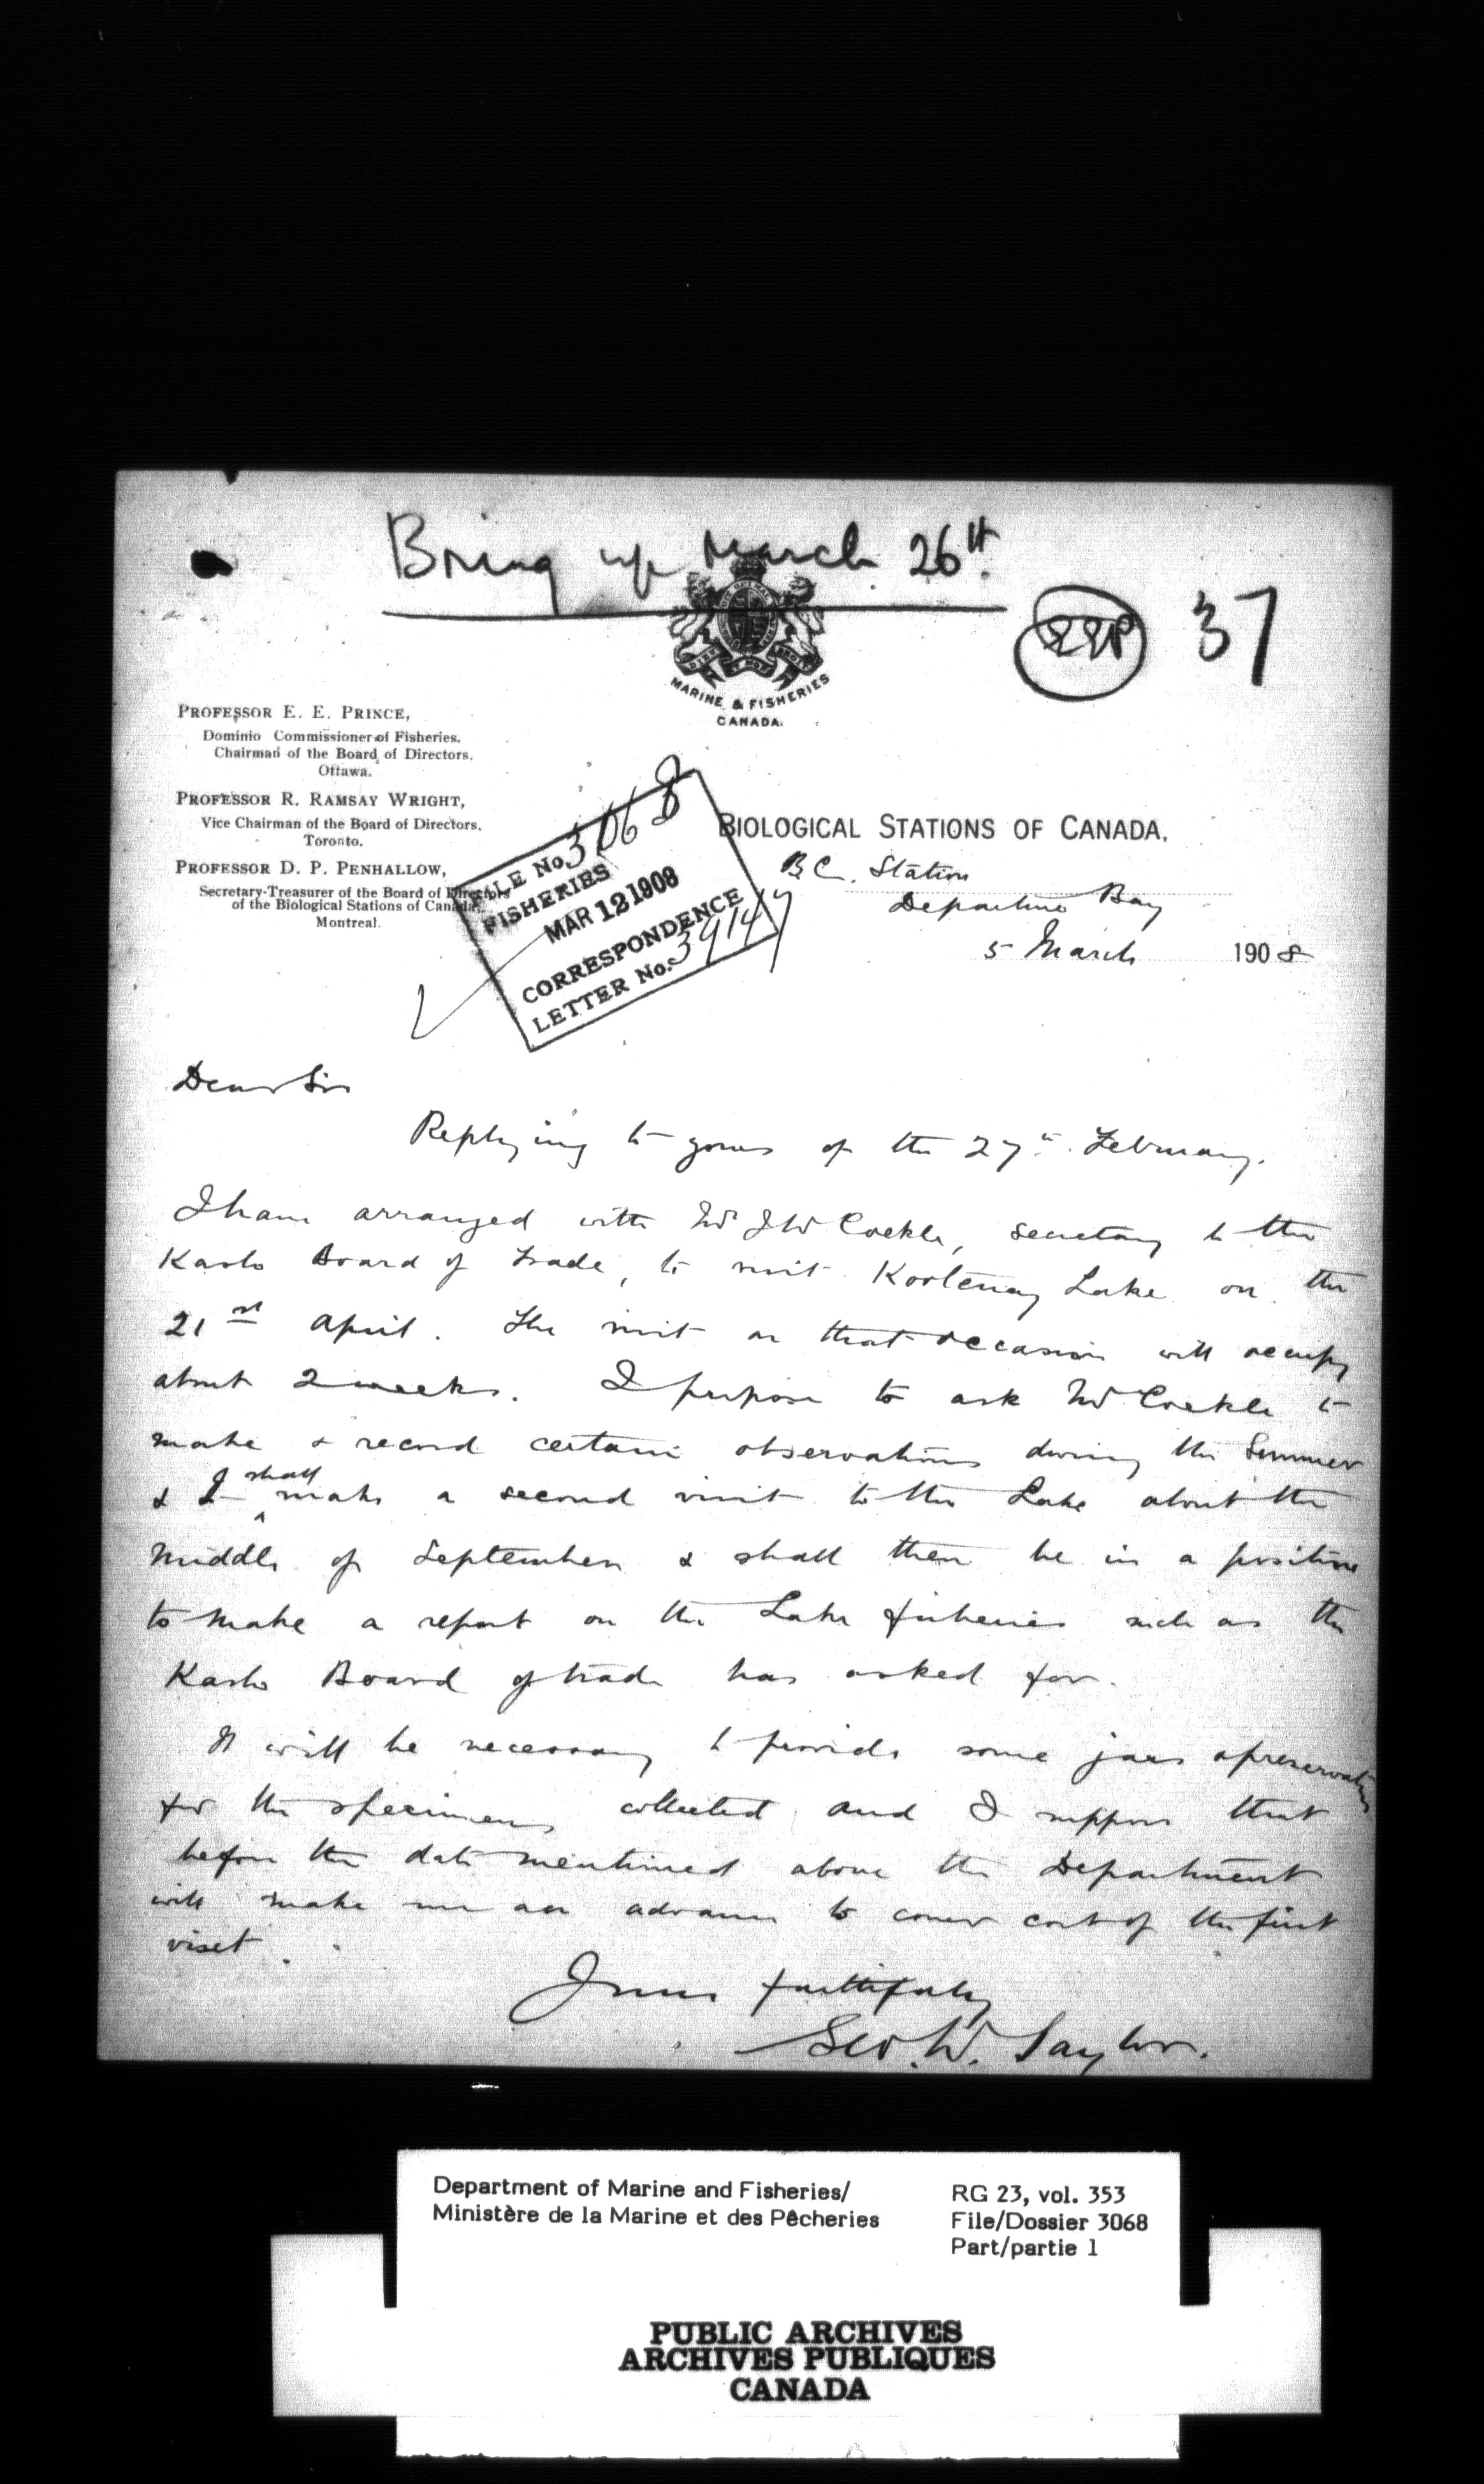 Bring up March 26th.
EEP 37
MARINE & FISHERIES
CANADA.
PROFESSOR E. E. PRINCE,
Dominio Commissioner of Fisheries.
Chairman of the Board of Directors.
Ottawa.
PROFESSOR R. RAMSAY WRIGHT,
Vice Chairman of the Board of Directors,
Toronto.
PROFESSOR D. P. PENHALLOW,
Secretary-Treasurer of the Board of Directors
of the Biological Stations of Canada.
Montreal.
FILE No. 3068
FISHERIES
MAR 12 1908
CORRESPONDENCE
LETTER No.
BIOLOGICAL STATIONS OF CANADA.
B C. Station
Departure Bay
5 March 1908
Dear Sir
Replying to yours of the 27th February.
I have arranged with Mr J W Cockle, secretary to the
Kaslo Board of Trade, to visit Kootenay Lake on the
21st April. The visit on that occasion will occupy
about 2 weeks. I purpose to ask Mr Cockle to
make & record certain observations during the Summer
& I shall make a second visit to the Lake about the
middle of September & shall then be in a position
to make a report on the Lake fisheries such as the
Kaslo Board of trade has asked for.
It will be necessary to provide some jars & preservatives
for the specimens collected and I suppose that
before the date mentioned above the Department
will make me an advance to cover cost of the first
viset.
Yours faithfully
Geo. W. Taylor.
Department of Marine and Fisheries/
Ministère de la Marine et des Pêcheries
RG 23, vol. 353
File/Dossier 3068
Part/partie 1
PUBLIC ARCHIVES
ARCHIVES PUBLIQUES
CANADA